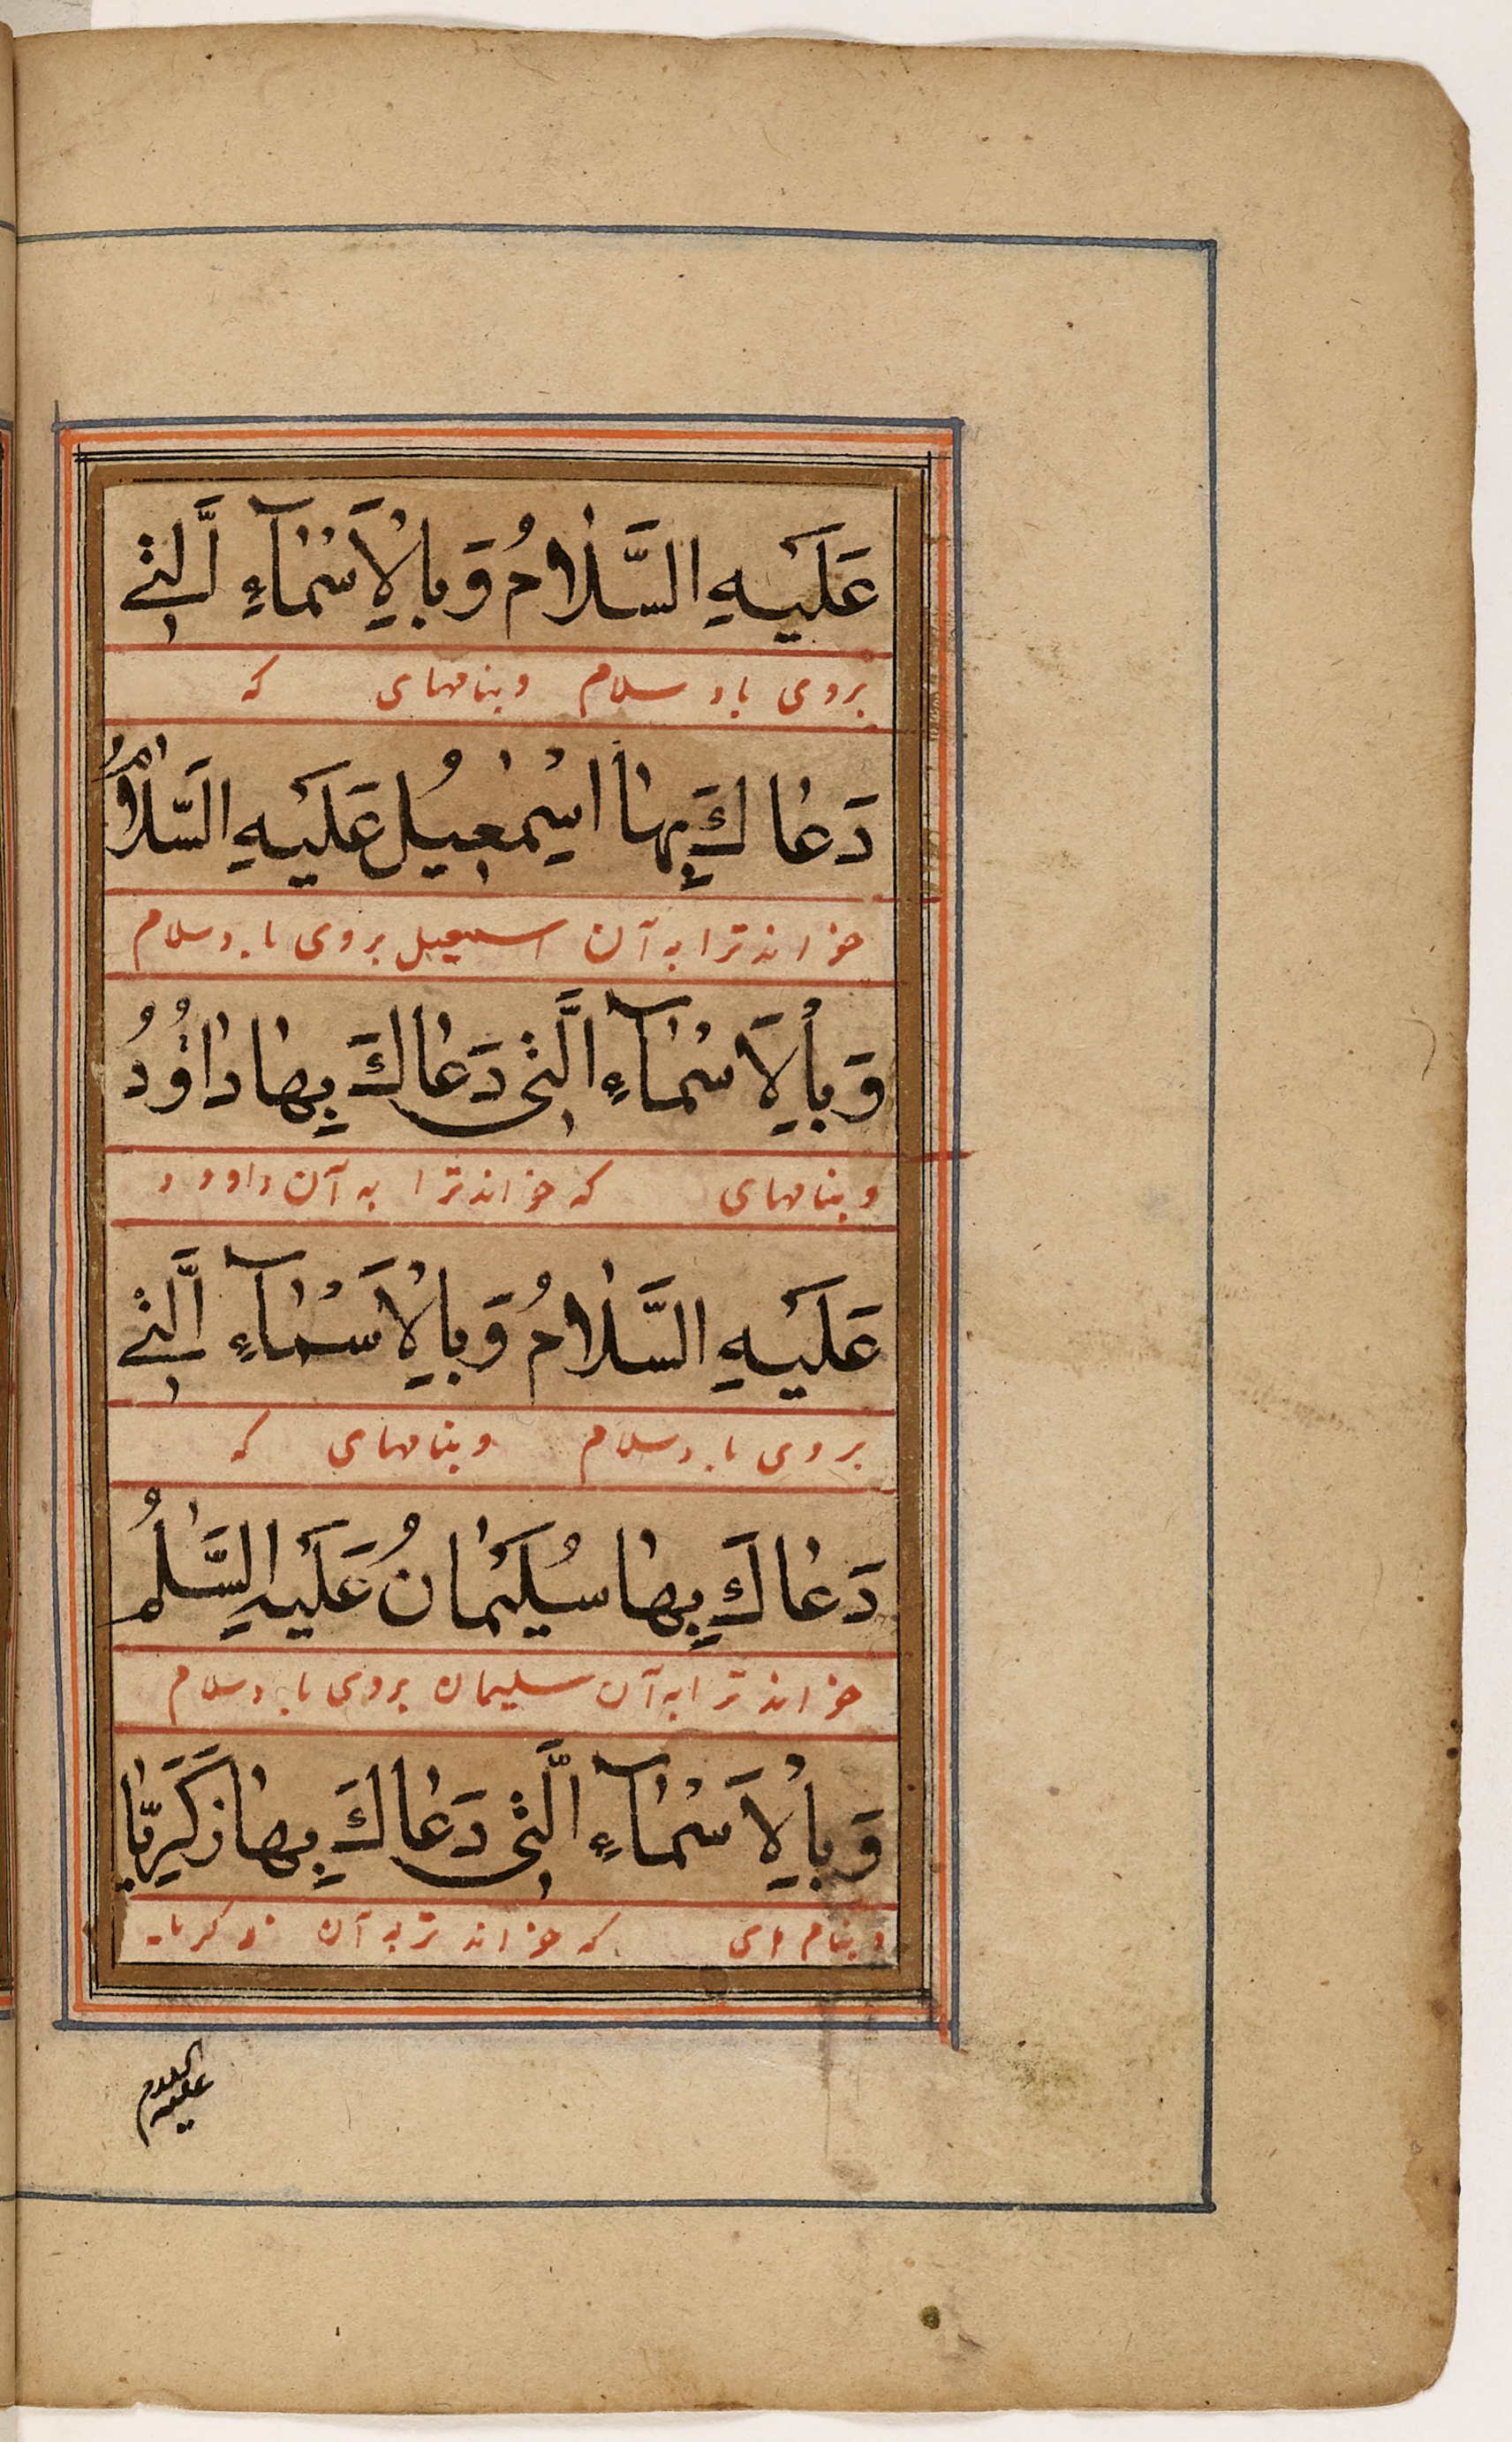 عَلَيْهِ السَّلَامُ وَبِالْاَسْمَآءِ الَّتِي
بروی باد سلام وبنامهای که
دَعَاكَ بِهَا اِسْمٰعِيلُ عَلَيْهِ السَّلَامُ وَ
خواند ترا به آن اسمعیل بروی باد سلام
وَبِالْاَسْمَآءِ الَّتِي دَعَاكَ بِهَا دَاوُدُ
وبنامهای که خواند ترا به آن داوود
عَلَيْهِ السَّلَامُ وَبِالْاَسْمَآءِ الَّتِي
بروی باد سلام وبنامهای که
دَعَاكَ بِهَا سُلَيْمَانُ عَلَيْهِ السَّلٰمُ
خواند ترا به آن سلیمان بروی باد سلام
وَبِالْاَسْمَآءِ الَّتِي دَعَاكَ بِهَا زَكَرِيَّا
وبنام های که خواند تر به آن زکریا
عليه السلام